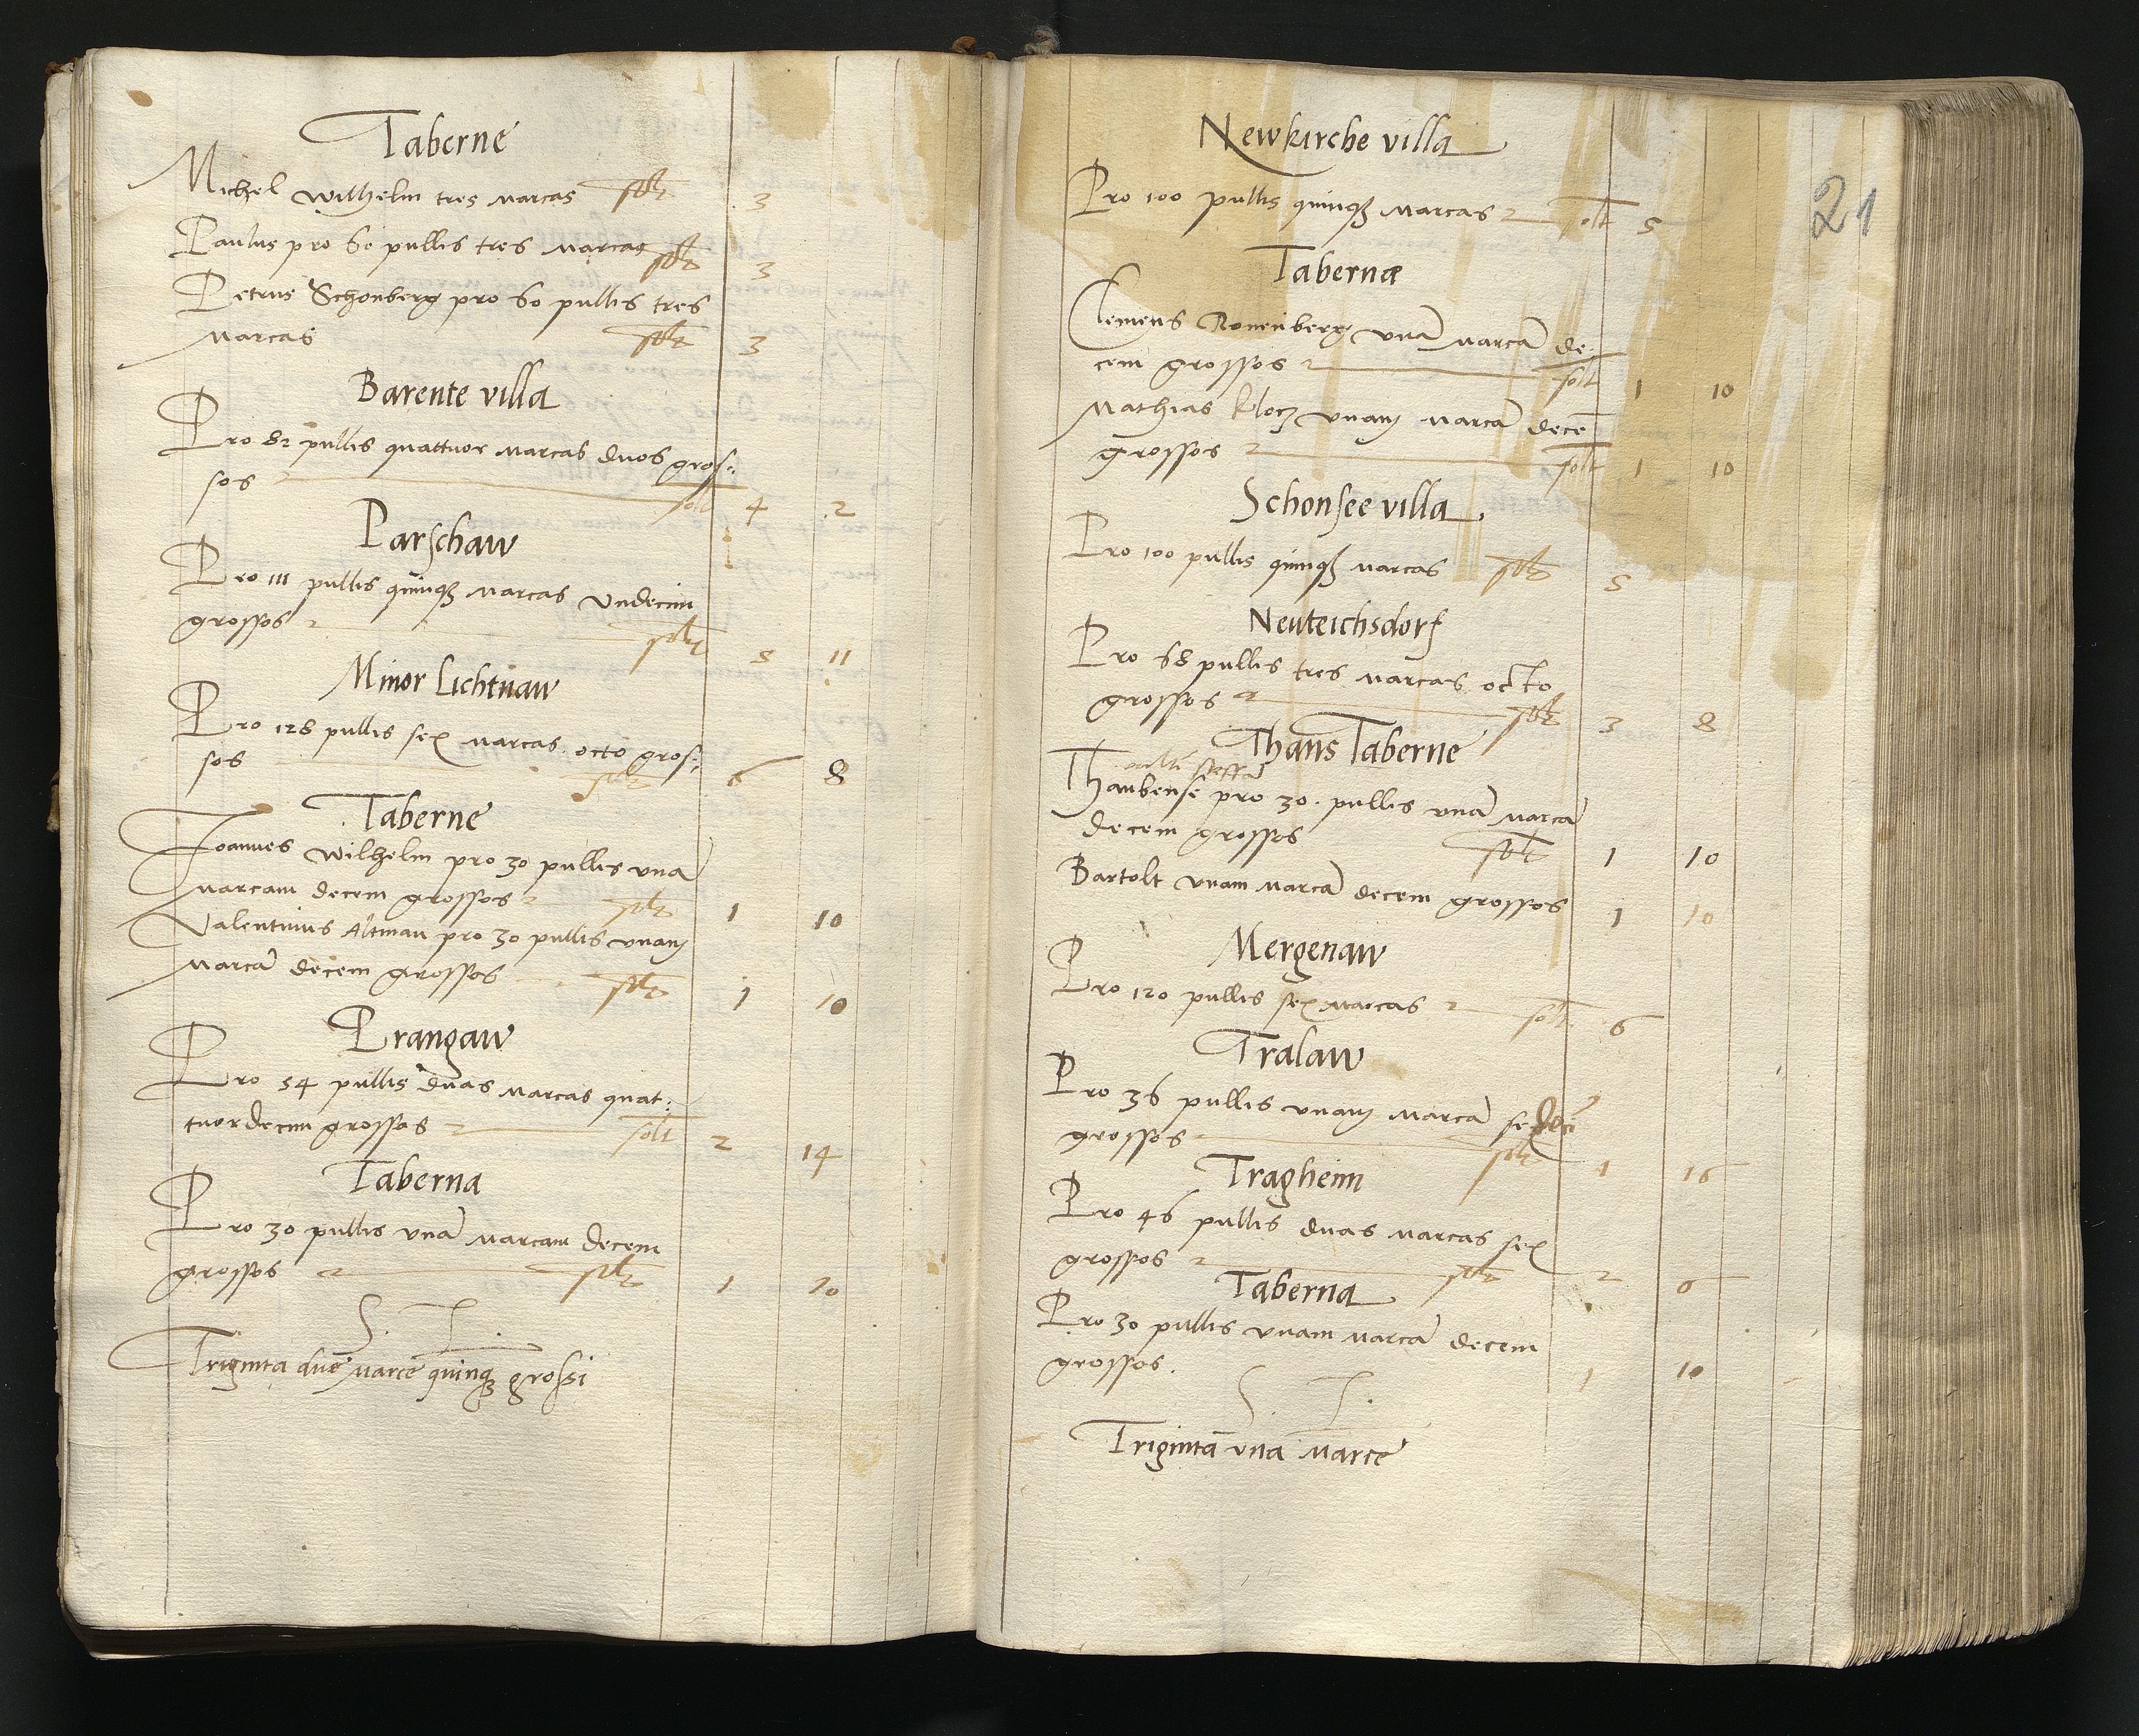 Taberne
Michel Wilhelm tres marcas solt 3
Paulus pro 60 pullis tres marcas solt 3
Petrus Schonberg pro 60 pullis tres
marcas solt 3
Barente villa
Pro 82 pullis quattuor marcas duos gros:
sos solt 4 2
Parschaw
Pro 111 pullis quinqȝ marcas undecim
grossos solt 5 11
Minor Lichtnaw
Pro 128 pullis sex marcas octo gros:
sos solt 6 8
Taberne
Joannes Wilhelm pro 30 pullis unā
marcam decem grossos solt 1 10
Valentinus Altman pro 30 pullis unam
marcā decem grossos solt 1 10
Prangaw
Pro 54 pullis duas marcas quat:
tuordecim grossos solt 2 14
Taberna
Pro 30 pullis unā marcam decem
grossos solt 1 10
S. T.
Triginta due marce quinqȝ grossi
21
Newkirche villa
Pro 100 pullis quinqȝ marcas solt 5
Tabernæ
Clemens Ronenberg unā marcā de:
cem grossos solt 1 10
Mathias Klocz unam marcā decē
grossos solt 1 10
Schonsee villa
Pro 100 pullis quinqȝ marcas solt 5
Neuteichsdorf
Pro 68 pullis tres marcas octo
grossos solt 3 8
Thans Taberne
Thaubense pro 30 pullis unā marcā
decem grossos solt 1 10
Bartolt unam marcā decem grossos 1 10
Mergenaw
Pro 120 pullis sex marcas solt 6
Tralaw
Pro 36 pullis unam marcā sedeci
grossos solt 1 16
Tragheim
Pro 46 pullis duas marcas sex
grossos solt 2 6
Taberna
Pro 30 pullis unam marcā decem
grossos. 1 10
S. T.
Triginta una marce